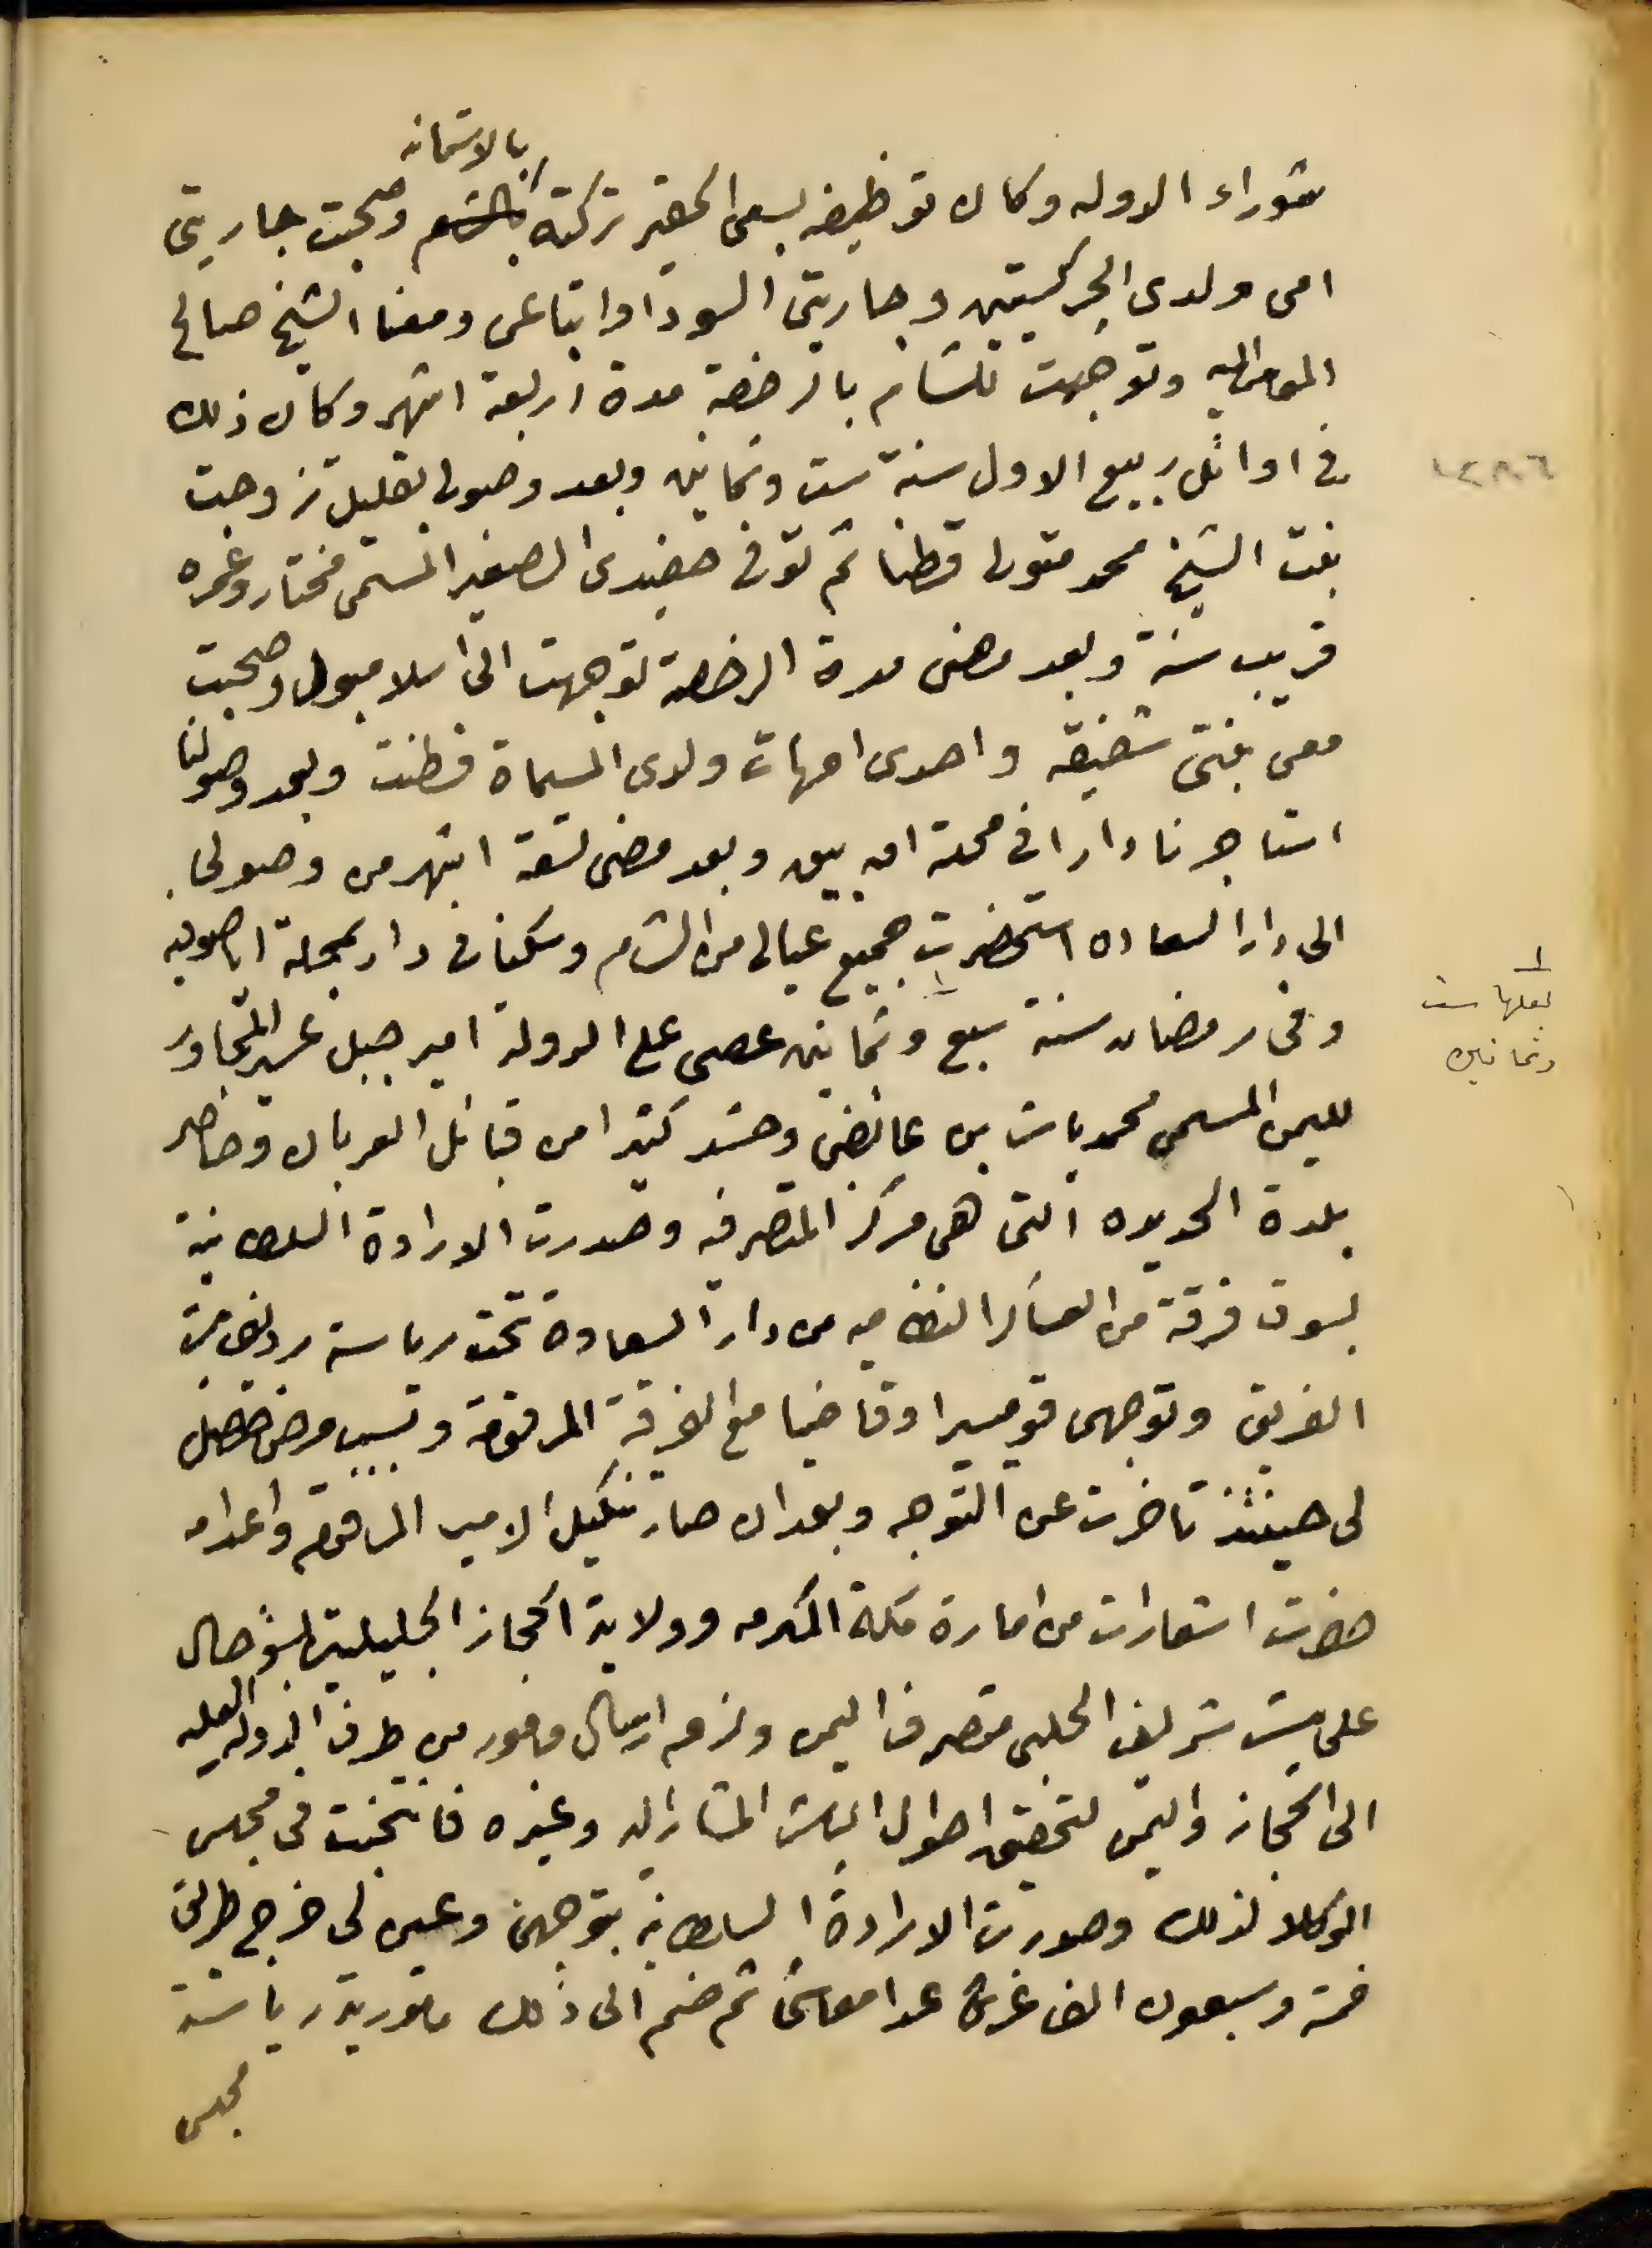 بالاستانه
شوراء الدوله وكان توظيفه بسعى الحقير تركته بالشام وصحبت جاريتى
امى ولدى الجركسيتين وجاريتى السودا واتباعى ومعنا الشيخ صالح
المومى اليه وتوجهت للشام بالرخصة مدة اربعة اشهر وكان ذلك
فى اوائل ربيع الاول سنة ست وثمانين وبعد وصولى بقليل تزوجت
١٢٨٦
بنت الشيخ محمد متولى قطنا ثم توفى حفيدى الصغير المسمى مختار وعمره
قريب سنة وبعد مضى مدة الرخصة توجهت الى اسلامبول وصحبت
معى بنتى شفيقه واحدى امهات ولدى المسماة فطنت وبعد وصولنا
استاجرنا دارا فى محلة وبعد مضى تسعة اشهر من وصولى
الى دار السعاده استحضرت جميع عيالى من الشام وسكنا فى دار بمحلة
١
لعلها ست
وثمانين
وفى رمضان سنة سبع وثمانين عصى على الدولة امير جبل عسير المجاور
لليمن المسمى محمد باشا بن عائض وحشد كثيرا من قبائل العربان وحاصر
بلدة الحديده التى هى مركز المتصرفيه وصدرت الارادة السلطانية
بسوق فرقة من العساكر النظاميه من دار السعادة تحت رياسة رديف باشا
الفريق وتوجهى قوميسرا وقاضيا مع الفرقة المرقومة وبسبب مرض حصل
لى حينئذ تاخرت عن التوجه وبعد ان صار تنكيل الامير المرقوم واعدامه
حضرت اشعارات من امارة مكة المكرمه وولاية الحجاز الجليلتين بسؤ حال
على باشا شريف الحلبى متصرف اليمن ولزم ارسال مامور من طرف الدولة العليه
الى الحجاز واليمن لتحقيق احوال الباشا المشار اليه وغيره فانتخبت فى مجلس
الوكلا لذلك وصدرت الارادة السلطانية بتوجهى وعين لى خرج طريق
خمسة وسبعون الف غرش عدا معاشى ثم ضم الى ذلك مامورية رياسة
مجلس